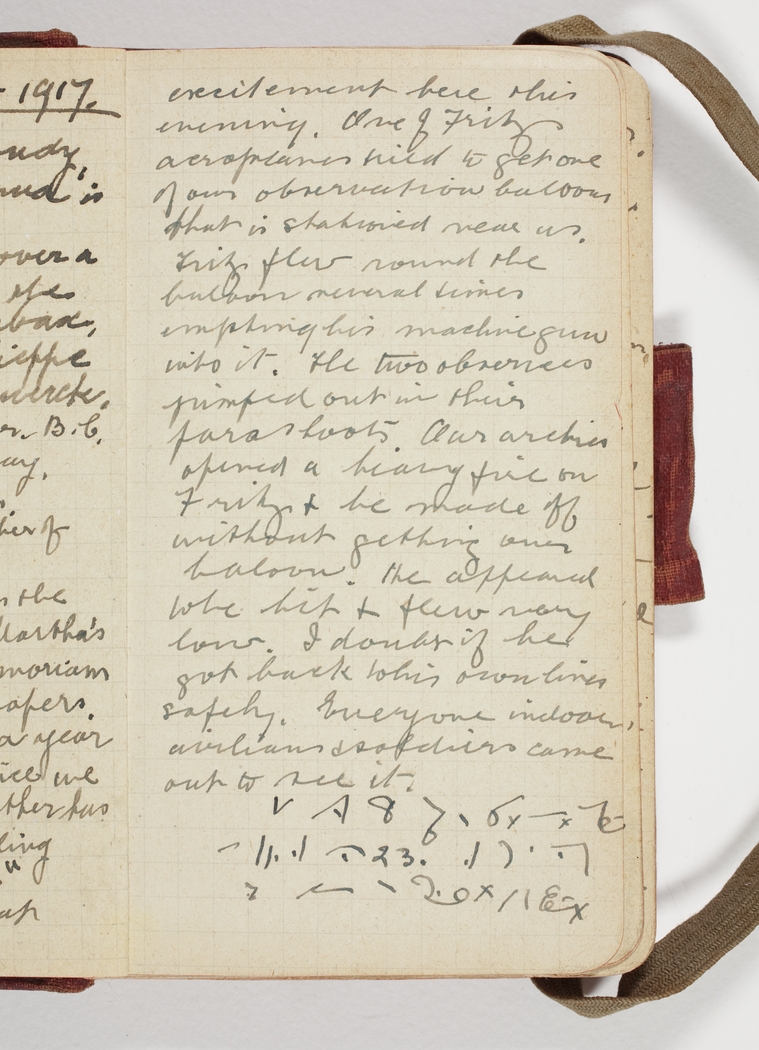 - 1917.
oudy,
mud is
over a
the
ieppe
B.C.
ay,
her of
s the
Martha's
moriam
apers.
a year
ice we
ther has
ling
excitement here this
evening. One of Fritz
aeroplanes tried to get one
of our observation baloons
that is stationed near us.
Fritz flew round the
baloon several times
emptying his machine gun
into it. The two observers
jumped out in their
parashoots. Our archies
opened a heavy fire on
Fritz & he made off
without getting our
baloon. He appeared
to be hit & flew very
low. I doubt if he
got back to his own lines
safely. Everyone indoors,
civilians & soldiers came
out to see it.